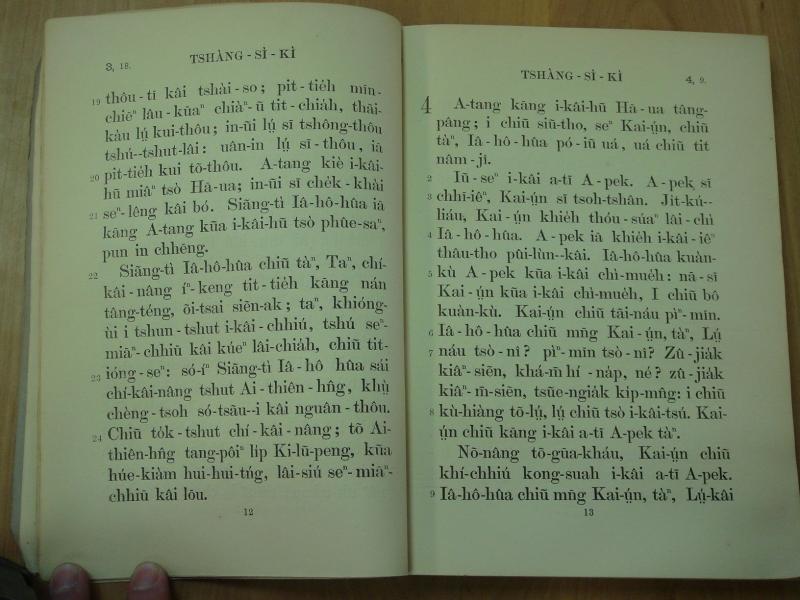 3, 18.
TSHÀNG-SÌ-KÌ
19 thôu-tī kâi tshài-so; pit-tie̍h mīn-
chiēⁿ lâu-kūaⁿ chiàⁿ-ū tit-chia̍h, thāi-
kàu lṳ́ kui-thôu; in-ūi lṳ́ sĩ tshông-thôu
tshú--tshut-lâi: uân-in lṳ́ sĩ-thôu, iā
pit-tie̍h kui tõ-thôu.  A-tang kiè i-kâi-
20 hū miâⁿ tsò Hā-ua; in-ūi sĩ che̍k-khài
seⁿ-lêng kâi bó.  Siāng-tì Iâ-hô-hûa iā
21 kāng A-tang kūa i-kâi-hū tsò phûe-saⁿ,
pun in chhēng.
22 Siāng-tì Iâ-hô-hûa chiū tàⁿ, Taⁿ, chí-
kâi-nâng íⁿ-keng tit-tie̍h kāng nán
tâng-téng, õi-tsai siēn-ak; taⁿ, khióng-
ùi i tshun-tshut i-kâi-chhiú, tshú seⁿ-
miāⁿ-chhiū kâi kúeⁿ lâi-chia̍h, chiū tit-
23 ióng-seⁿ: só-íⁿ Siāng-tì Iâ-hô hûa sái
chí-kâi-nâng tshut Ai-thiên-hn̂g, khṳ̀
chèng-tsoh só-tsāu--i kâi nguân-thôu.
24 Chiū to̍k-tshut chí-kâi-nâng; tõ Ai-
thiên-hn̂g tang-pôiⁿ li̍p Ki-lū-peng, kūa
húe-kiàm hui-hui-tńg, lâi-siú seⁿ-miāⁿ-
chhiū kâi lōu.
12
TSHÀNG-SÌ-KÌ
4, 9.
4 A-tang kāng i-kâi-hū Hā-ua tâng-
pâng; i chiū siū-tho, seⁿ Kai-ṳ́n, chiū
tàⁿ, Iâ-hô-hûa pó-iū uá, uá chiū tit
nâm-jî.
2 Iū-seⁿ i-kâi a-tī A-pek.  A-pek sĩ
3 chhī-iêⁿ, Kai-ṳ́n sĩ tsoh-tshân.  Jit-kú--
liáu, Kai-ṳ́n khie̍h thóu-súaⁿ lâi-chì
4 Iâ-hô-hûa.  A-pek iā khie̍h i-kâi-iêⁿ
thâu-tho pûi-lùn--kâi.  Iâ-hô-hûa kuàn-
5 kù A-pek kūa i-kâi chì-mue̍h: nā-sĩ
Kai-ṳ́n kūa i-kâi chì-mue̍h, I chiū bô
kuàn-kù.  Kai-ṳ́n chiū tāi-náu pìⁿ-mīn.
6 Iâ-hô-hûa chiū mn̄g Kai-ṳ́n, tàⁿ, Lṳ́
7 náu tsò-nî? pìⁿ-mīn tsò-nî? Zû-jia̍k
kiâⁿ-siēn, khá-m̄ hí-na̍p, né? zû-jia̍k
kiâⁿ-m̄-siēn, tsũe-ngia̍k kip-mn̂g: i chiū
8 kù-hiàng tõ-lṳ́, lṳ́ chiū tsò i-kâi-tsú.  Kai-
ṳ́n chiū kāng i-kâi a-tī A-pek tàⁿ.
Nō-nâng tõ-gūa-kháu, Kai-ṳ́n chiū
khí-chhiú kong-suah i-kâi a-tī A-pek.
9 Iâ-hô-hûa chiū mn̄g Kai-ṳ́n, tàⁿ, Lṳ́-kâi
13